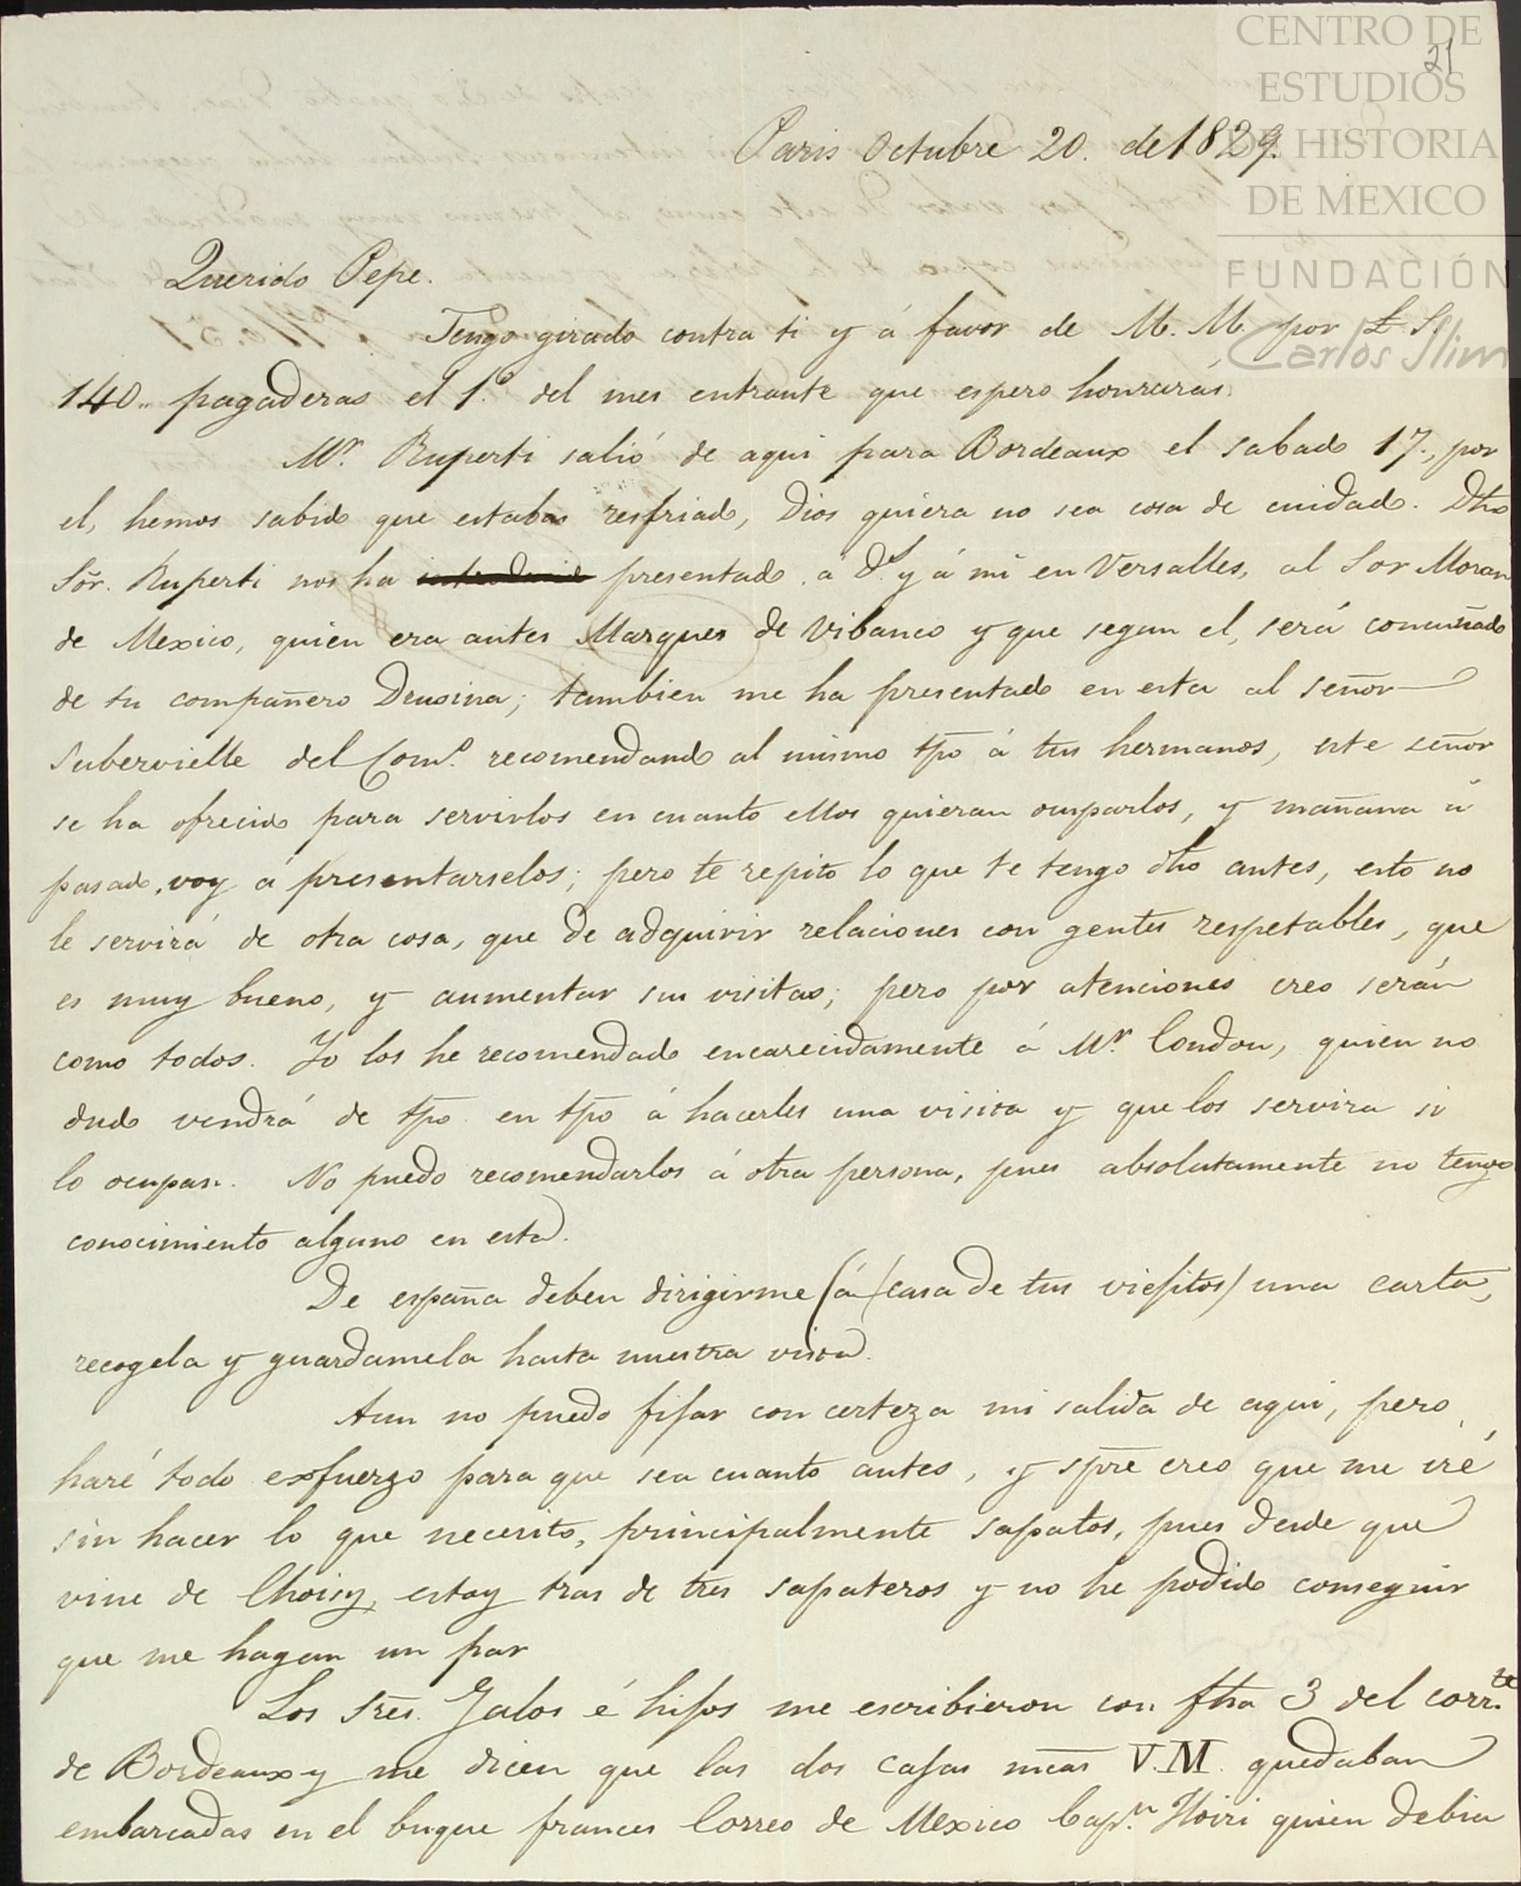 CENTRO DE
ESTUDIOS
DE HISTORIA
DE MEXICO
FUNDACIÓN
Carlos Slim
21
Paris Octubre 20. de 1829.
Querido Pepe.
Tengo girado contra ti y á favor de M. M. por £ S.
140.. pagaderas el 1º. del mes entrante que espero honrarás.
Mr. Ruperti salió de aqui para Bordeaux el sabado 17., por
el, hemos sabido que estabas resfriado, Dios quiera no sea cosa de cuidado. Dho
Sör. Ruperti nos ha presentado a y á mi en Versalles, al Sor Moran
de Mexico, quien era antes Marques de Vibanco y que segun el, será concuñado
de tu compañero Drusina; tambien me ha presentado en esta al señor
Subervielle del Com.º recomendando al mismo tpo á tus hermanos, este señor
se ha ofrecido para servirlos en cuanto ellos quieran ocuparlos, y mañana ú
pasado, voy á presentarselos; pero te repito lo que te tengo dho antes, esto no
le servirá de otra cosa, que de adquirir relaciones con gentes respetables, que
es muy bueno, y aumentar sus visitas; pero por atenciones creo serán
como todos. Yo los he recomendado encarecidamente á Mr. London, quien no
dudo vendrá de tpo en tpo á hacerles una visita y que los servira si
lo ocupan. No puedo recomendarlos á otra persona, pues absolutamente no tengo
conocimiento alguno en esta.
De españa deben dirigirme (á casa de tus viejitos) una carta,
recogela y guardamela hasta nuestra vista.
Aun no puedo fijar con certeza mi salida de aqui, pero
haré todo exfuerzo para que sea cuanto antes, y spre creo que me iré
sin hacer lo que necesito, principalmente sapatos, pues desde que
vine de Choisy, estoy tras de tres sapateros y no he podido conseguir
que me hagan un par
Los Sres. Galos é hijos me escribieron con fha 3 del corrte.
de Bordeaux y me dicen que las dos cajas mcas V.M. quedaban
embarcadas en el buque frances Correo de Mexico Capn. Hoiri quien debia